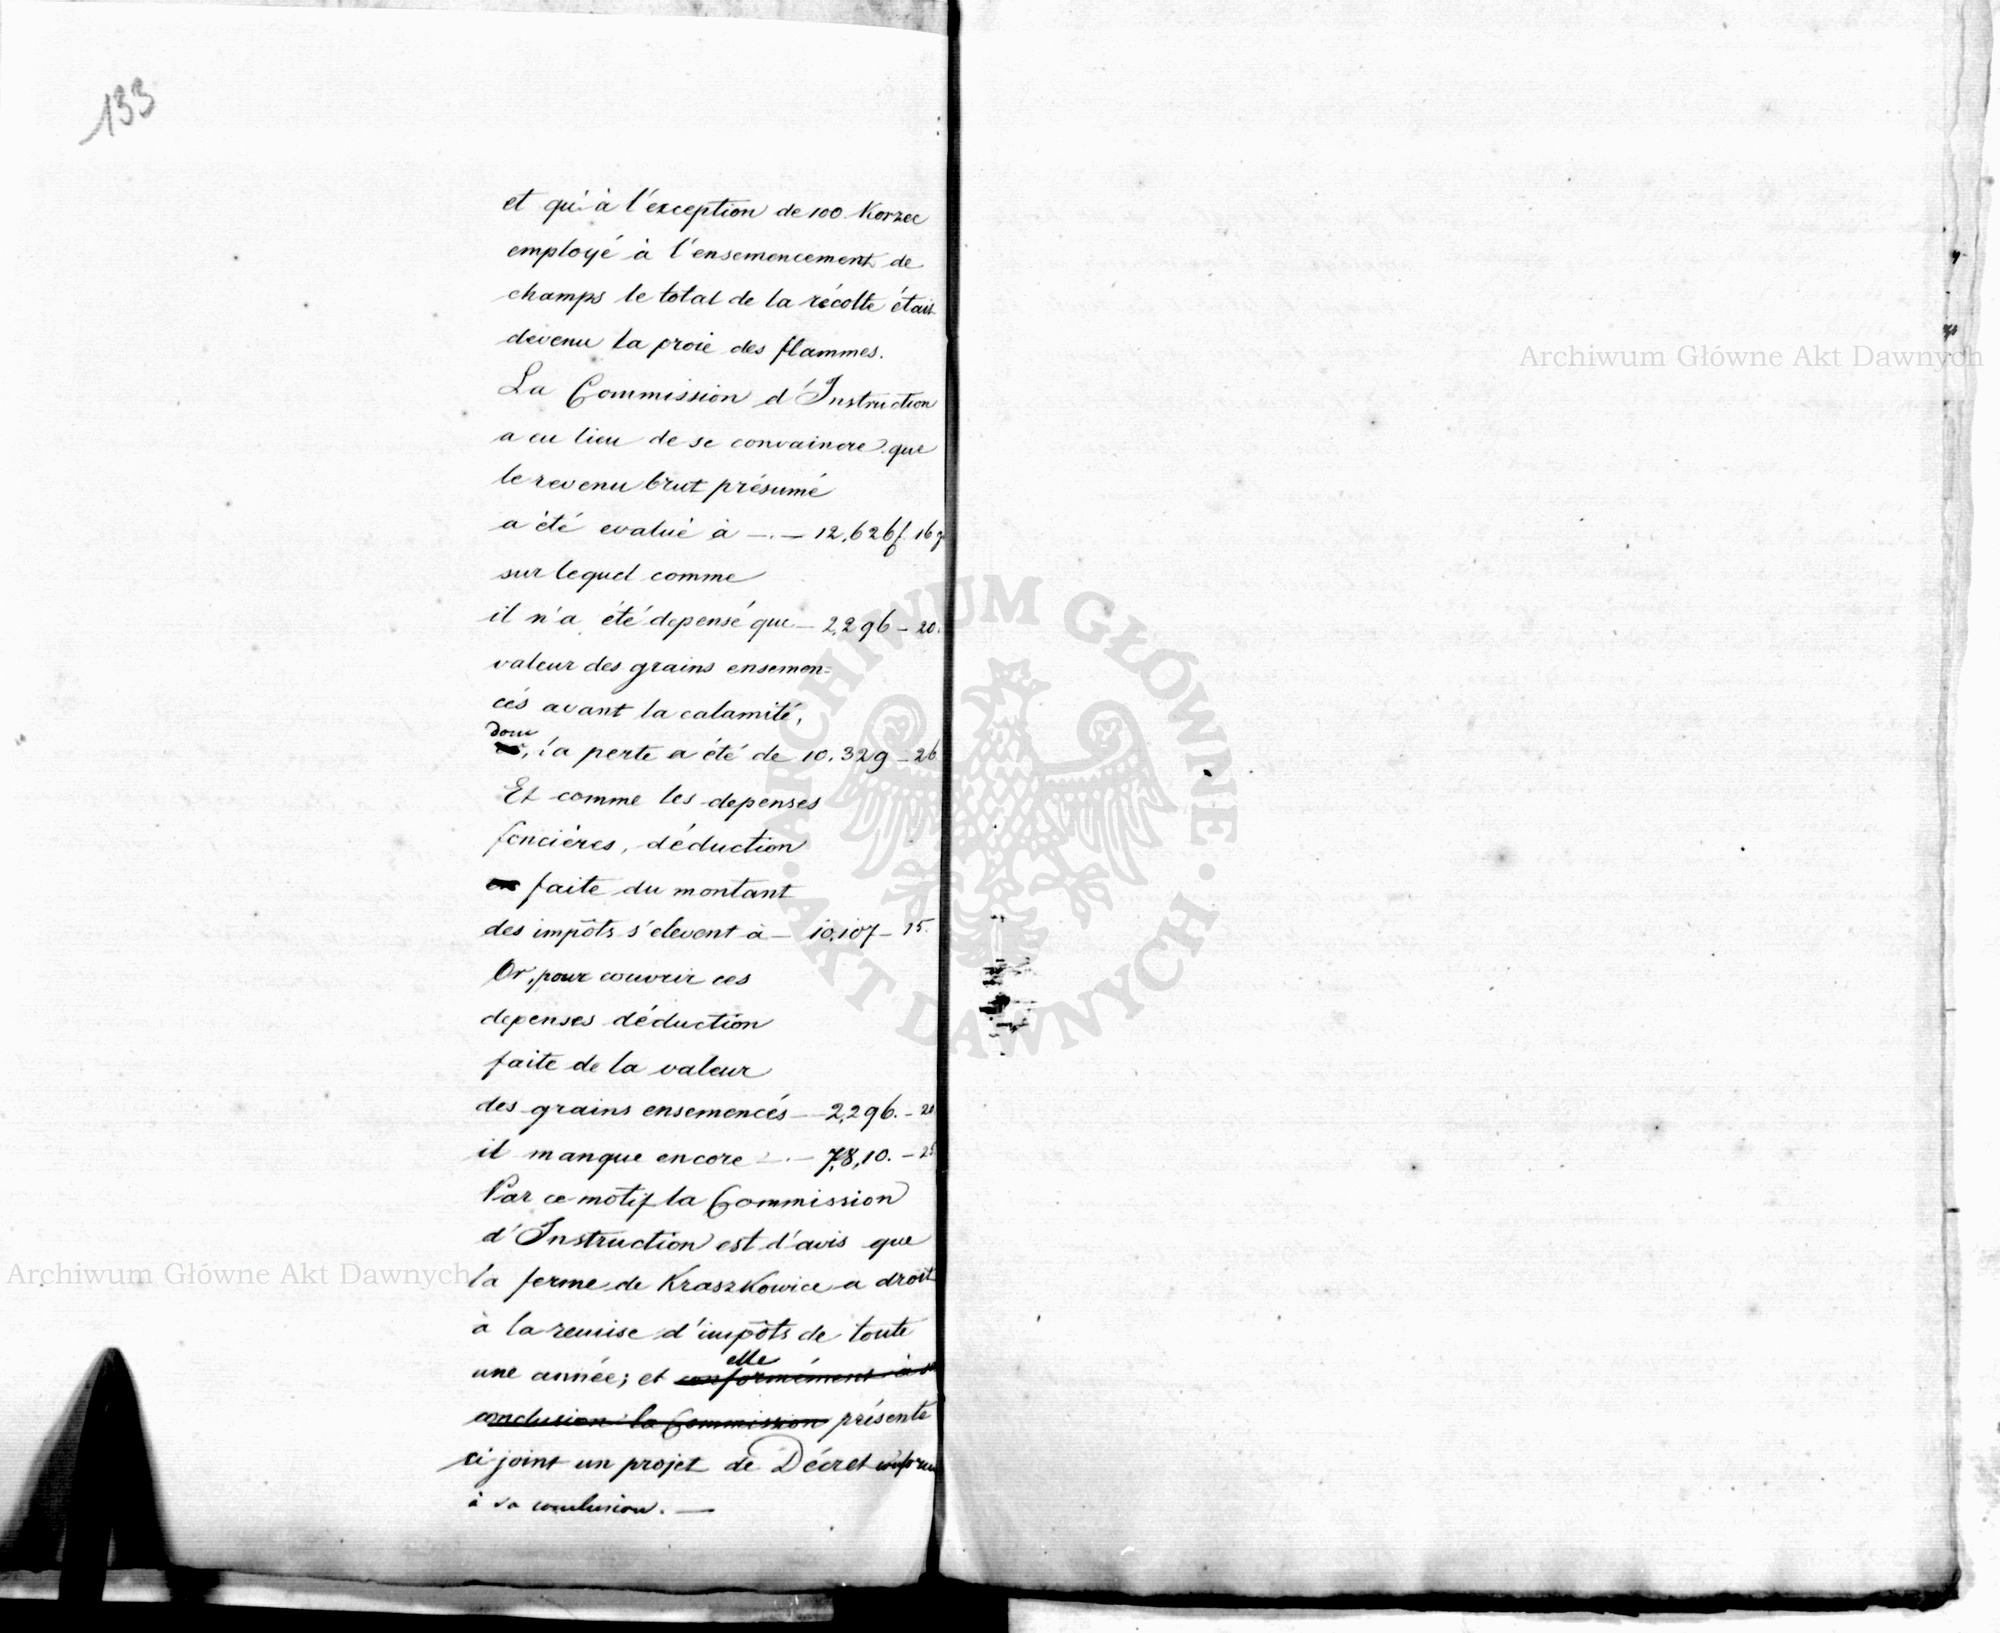 133
et qu'à l'exception de 100. Korzec
employé à l'ensemencement de
champs le total de la récolte était
devenu la proie des flammes.
La Commission d'Instruction
a eu lieu de se convaincre que
le revenu brut présumé
a été evalué à —.— 12,626f. 16g
sur lequel comme
il n'a été depensé que — 2,296 – 20.
valeur des grains ensemen=
cés avant la calamité,
donc
la perte a été de 10,329 – 26
Et comme les depenses
foncières, déduction
faite du montant
des impôts s'elevent à — 10,107 – 15.
Or, pour couvrir ces
depenses déduction
faite de la valeur
des grains ensemencés — 2,296. – 20
il manque encore —.— 7,8,10. – 25
Par ce motif la Commission
d'Instruction est d'avis que
la ferme de Kraszkowice a droit
à la remise d'impôts de toute
elle
une année; et conformément à sa
conclusion la Commission présente
ci joint un projet de Décret conforme
à sa conclusion. —
Archiwum Główne Akt Dawnych
Archiwum Główne Akt Dawnych
ARCHIWUM GŁÓWNE
AKT DAWNYCH